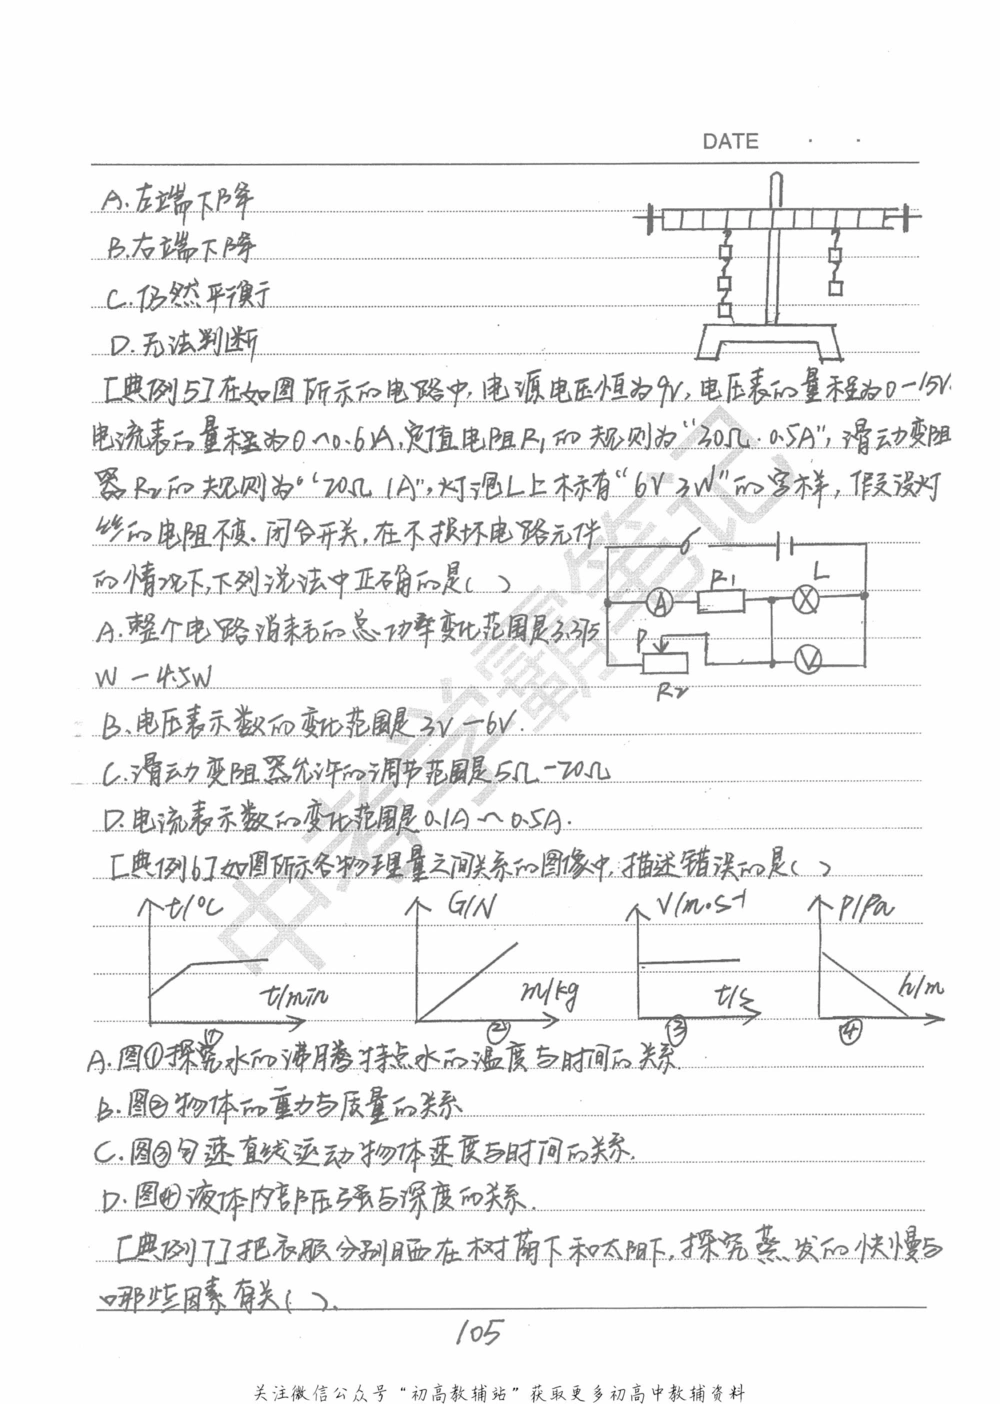 DATE · ·
A.左端下降
B.右端下降
C.仍然平衡
D.无法判断
[典例5]在如图所示的电路中,电源电压恒为9V,电压表的量程为0—15V.
电流表的量程为0~0.6A,定值电阻R₁的规则为"30Ω·0.5A",滑动变阻
器R₂的规则为"20Ω 1A",灯泡L上标有"6V 3W"的字样,假设灯
丝的电阻不变.闭合开关,在不损坏电路元件
的情况下,下列说法中正确的是( )
R₁
L
A
A.整个电路消耗的总功率变化范围是3.375
P
V
W—4.5W
R₂
B.电压表示数的变化范围是3V—6V.
C.滑动变阻器允许的调节范围是5Ω—20Ω
D.电流表示数的变化范围是0.1A~0.5A.
[典例6]如图所示各物理量之间关系的图像中,描述错误的是( )
t/℃ G/N V/m·s⁻¹ P/Pa
t/min m/kg t/s h/m
① ② ③ ④
A.图①探究水的沸腾特点水的温度与时间的关系
B.图②物体的重力与质量的关系
C.图③匀速直线运动物体速度与时间的关系.
D.图④液体内部压强与深度的关系.
[典例7]把衣服分别晒在树荫下和太阳下,探究蒸发的快慢与
哪些因素有关( ).
105
关注微信公众号“初高教辅站”获取更多初高中教辅资料
中考学霸笔记